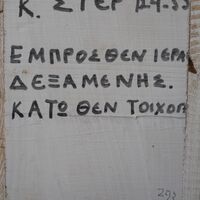 Κ. ΣΤΕΡ
ΕΜΠΡΟΣΘΕΝ ΙΕΡΑ
ΔΕΞΑΜΕΝΗΣ.
ΚΑΤΩΘΕΝ ΤΟΙΧΟΠ